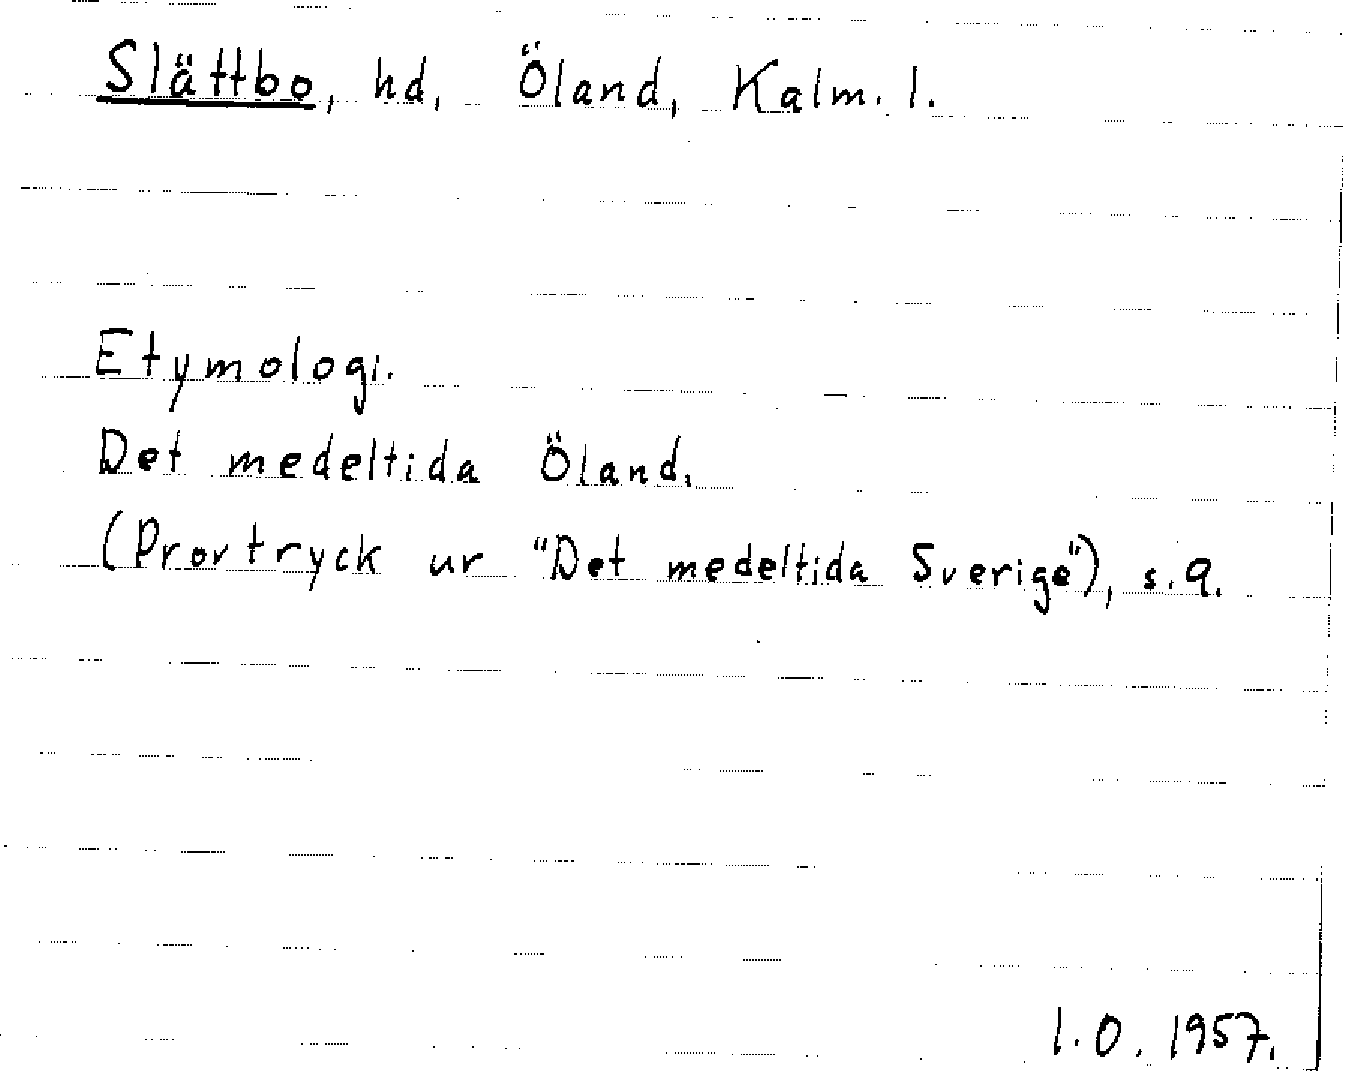 Slättbo, hd, Öland, Kalm. l.
Etymologi.
Det medeltida Öland.
(Provtryck ur "Det medeltida Sverige"), s. 9.
I.O. 1957.